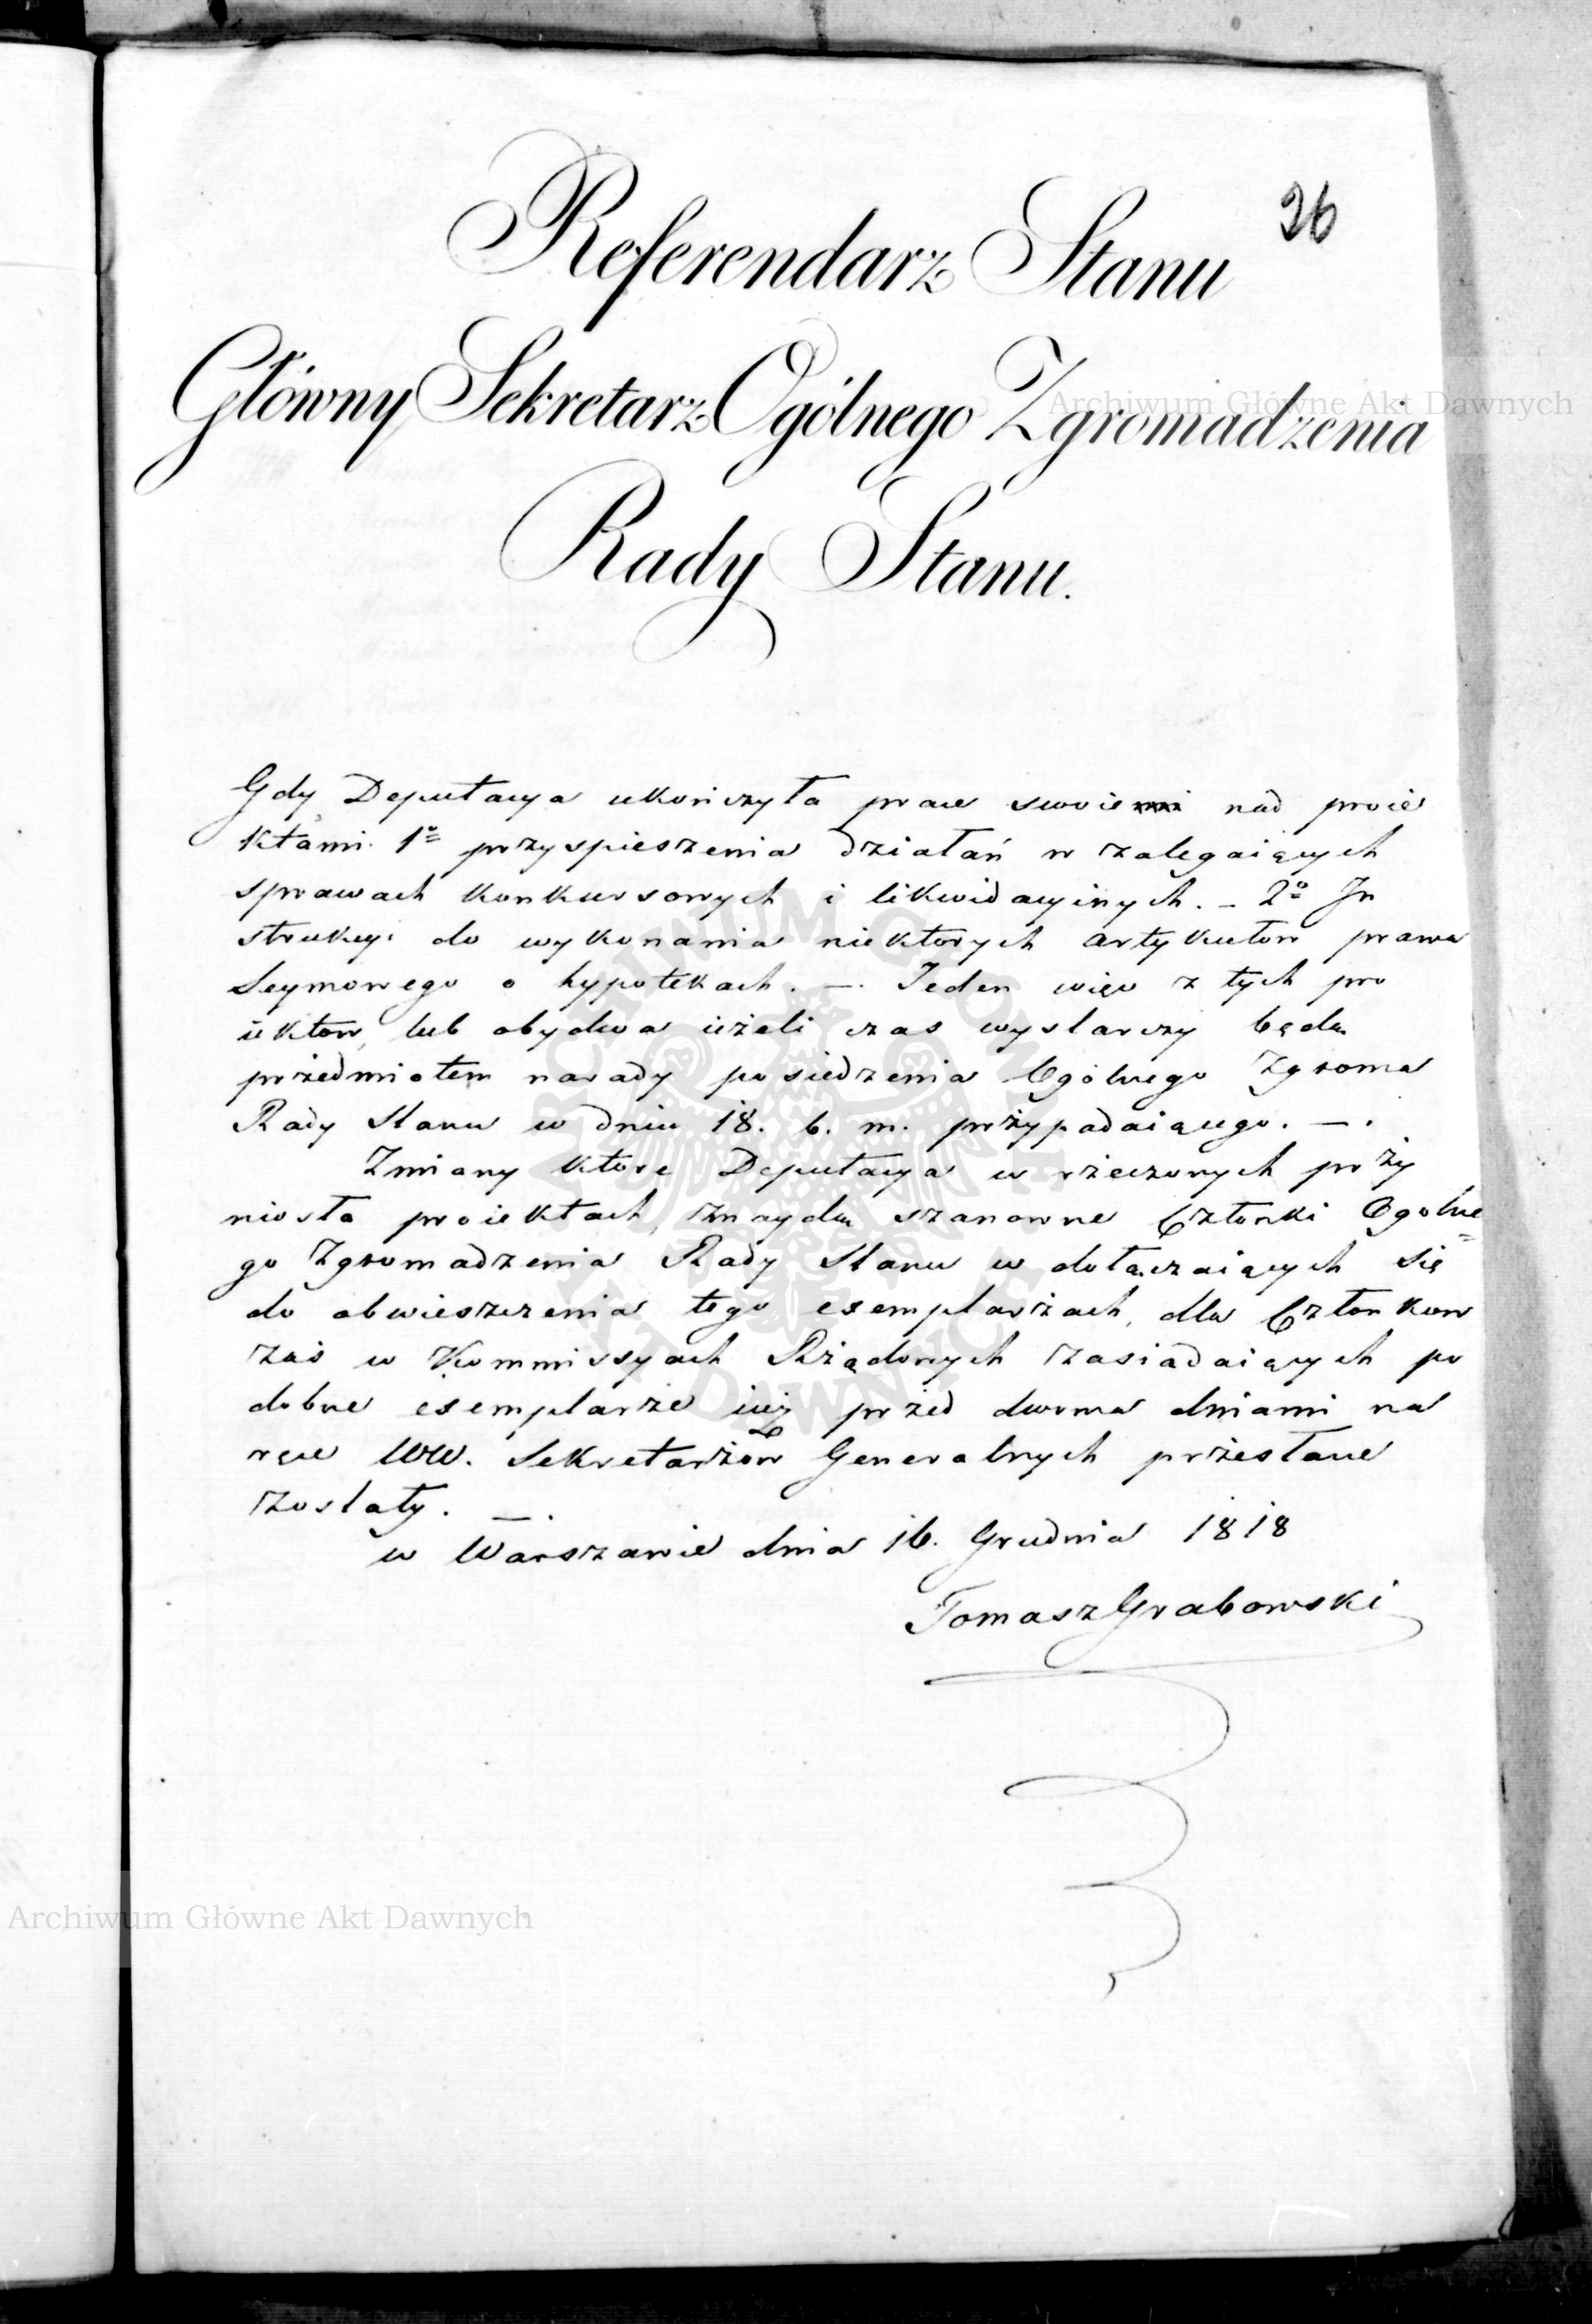 26
Referendarz Stanu
Główny Sekretarz Ogólnego Zgromadzenia
Rady Stanu.
Gdy Deputacya ukończyła prace swoie nad proie
ktami. 1º przyspieszenia działań w zalegaiących
sprawach konkursowych i likwidacyinych. – 2º In
strukcyi do wykonania niektórych artykułow prawa
Seymowego o hypotekach. – . Jeden więc z tych pro
iektow, lub obydwa ieżeli czas wystarczy będą
przedmiotem narady posiedzenia Ogólnego Zgroma
Rady Stanu w dniu 18. b. m. przypadaiącego. – .
Zmiany ktore Deputacya w rzeczonych przy
niosła proiektach, znaydą szanowne Członki Ogolne=
go Zgromadzenia Rady Stanu w dołączaiących się
do obwieszczenia tego exemplarzach, dla Członkow
zaś w Kommissyach Rządowych zasiadaiących po
dobne exemplarze iuż przed dwoma dniami na
ręce WW. Sekretarzów Generalnych przesłane
zostały. – .
w Warszawie dnia 16. Grudnia 1818
Tomasz Grabowski
Archiwum Główne Akt Dawnych
Archiwum Główne Akt Dawnych
ARCHIWUM GŁÓWNE AKT DAWNYCH